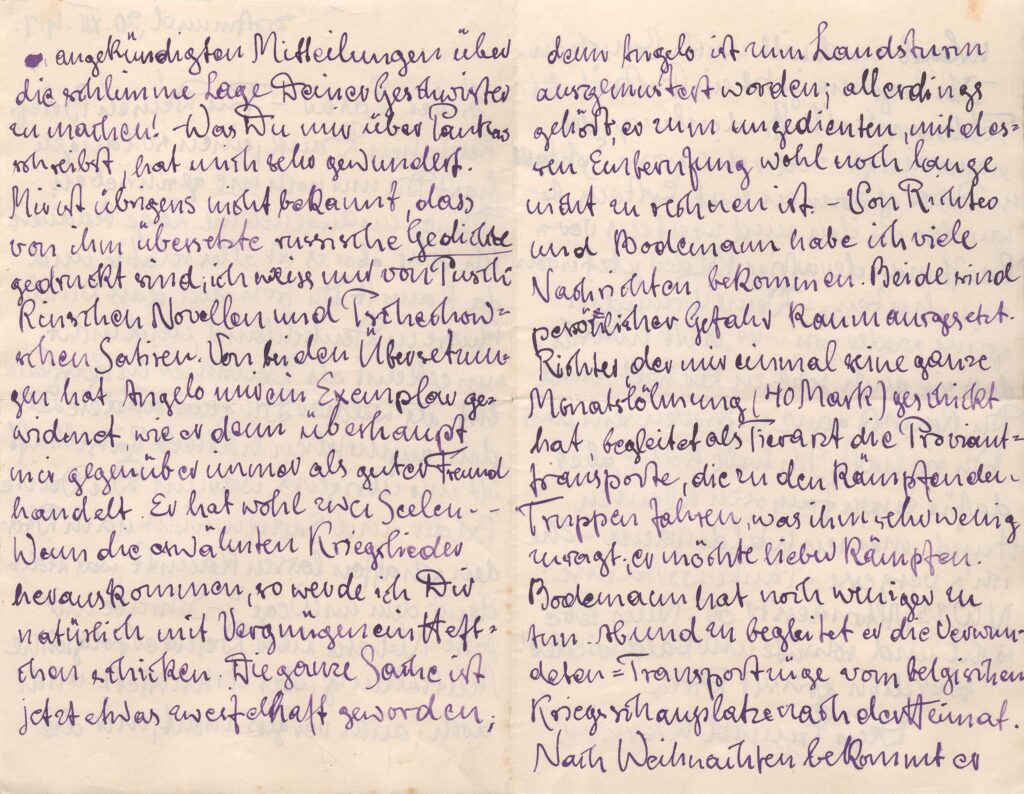 angekündigten Mitteilungen über
die schlimme Lage Deiner Geschwister
zu machen! – Was Du mir über Pankas
schreibst, hat mich sehr gewundert.
Mir ist übrigens nicht bekannt, dass
von ihm übersetzte russische Gedichte
gedruckt sind; ich weiss nur von Pusch-
kinschen Novellen und Tschechow=
schen Satiren. Von beiden Übersetzun-
gen hat Angelo mir ein Exemplar ge-
widmet, wie er denn überhaupt
mir gegenüber immer als guter Freund
handelt. Er hat wohl zwei Seelen. –
Wenn die erwähnten Kriegslieder
herauskommen, so werde ich Dir
natürlich mit Vergnügen ein Heft=
chen schicken. Die ganze Sache ist
jetzt etwas zweifelhaft geworden;
denn Angelo ist zum Landsturm
ausgemustert worden; allerdings
gehört er zum ungedienten, mit des-
sen Einberufung wohl noch lange
nicht zu rechnen ist. – Von Richter
und Bodemann habe ich viele
Nachrichten bekommen. Beide sind
persönlicher Gefahr kaum ausgesetzt.
Richter, der mir einmal seine ganze
Monatslöhnung (40 Mark) geschickt
hat, begleitet als Tierarzt die Proviant-
transporte, die zu den kämpfenden
Truppen fahren, was ihm sehr wenig
zusagt; er möchte lieber kämpfen.
Bodemann hat noch weniger zu
tun. Ab und zu begleitet er die Verwun-
deten=Transportzüge vom belgischen
Kriegsschauplatze nach der Heimat.
Nach Weihnachten bekommt er